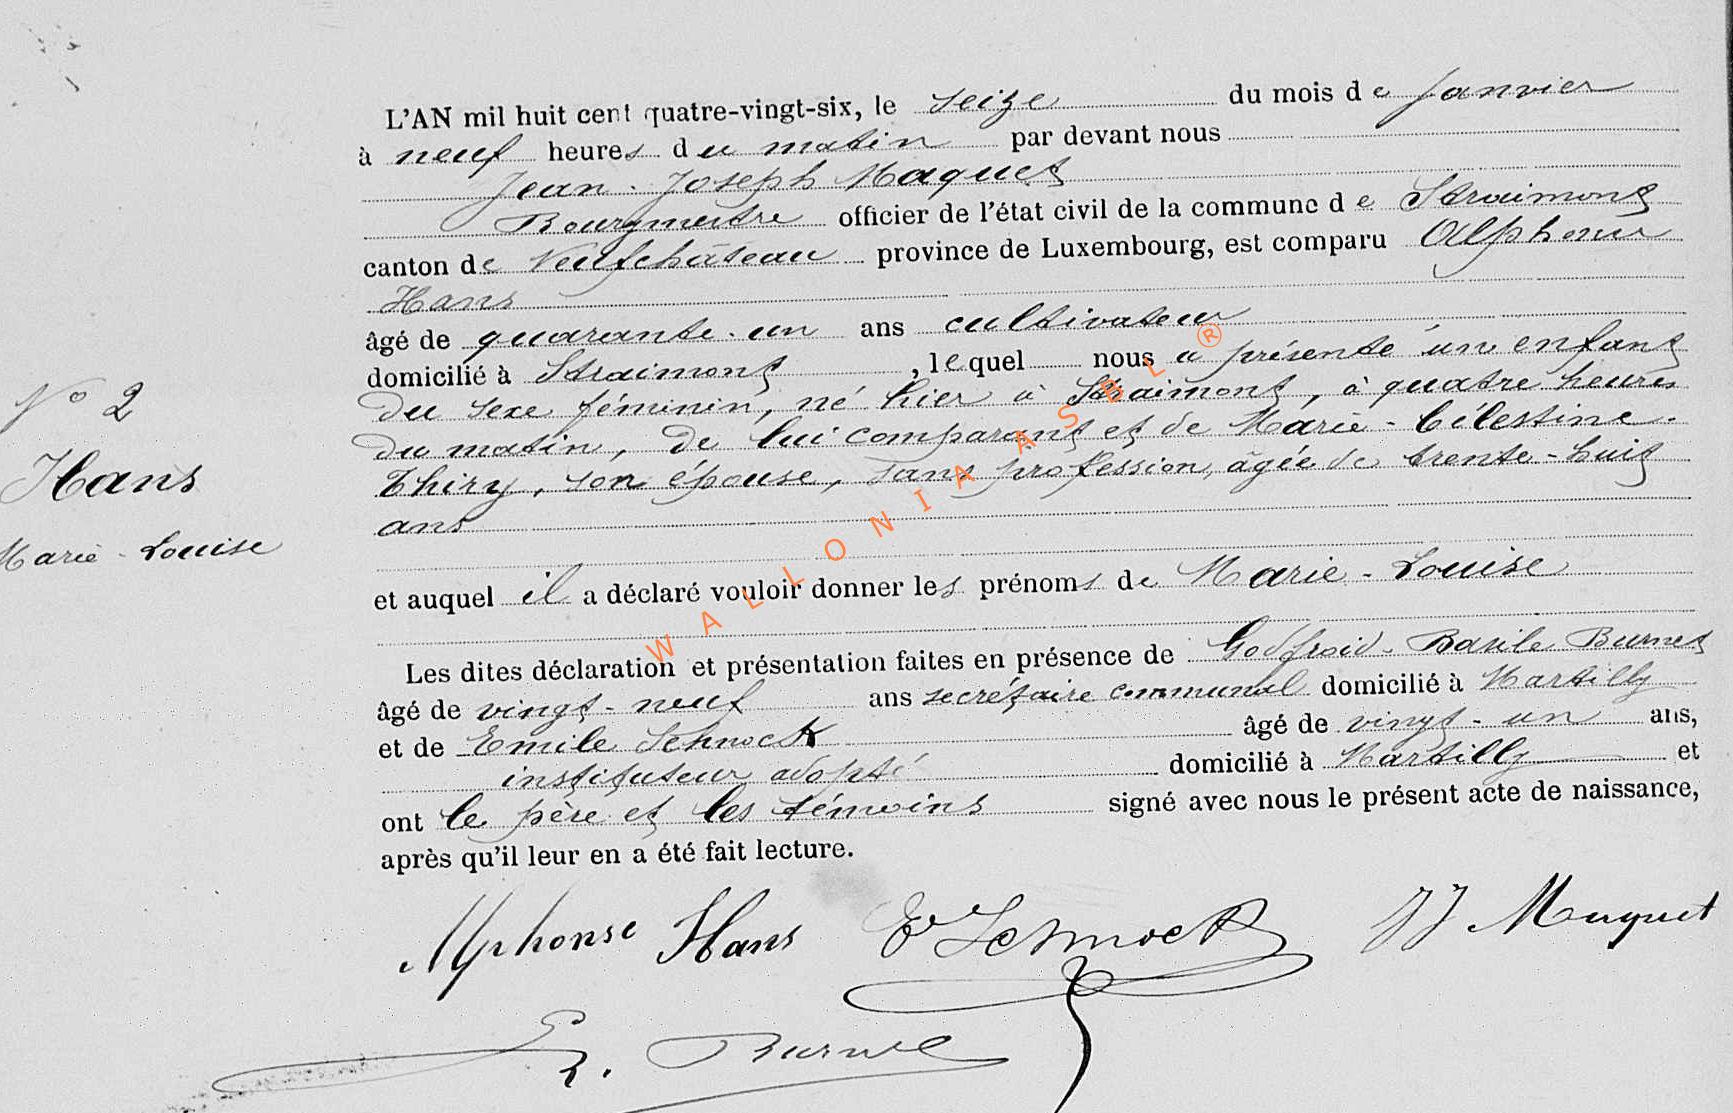 L'AN mil huit cent quatre-vingt-six, le seize du mois de Janvier
à neuf heures du matin par devant nous
Jean-Joseph Maquet
Bourgmestre officier de l'état civil de la commune de Straimont
canton de Neufchâteau province de Luxembourg, est comparu Alphonse
Hans
âgé de quarante-un ans cultivateur
domicilié à Straimont, lequel nous a présenté un enfant
du sexe féminin, né hier à Straimont, à quatre heures
N° 2
du matin, de lui comparant et de Marie-Célestine
Hans
Thiry, son épouse, sans profession, âgée de trente-huit
ans
Marie-Louise
et auquel il a déclaré vouloir donner les prénoms de Marie-Louise
Les dites déclaration et présentation faites en présence de Godfroid-Basile Burnet
âgé de vingt-neuf ans secrétaire communal domicilié à Martilly
et de Emile Schnock âgé de vingt-un ans,
instituteur adopté domicilié à Martilly et
ont le père et les témoins signé avec nous le présent acte de naissance,
après qu'il leur en a été fait lecture.
Alphonse Hans E Schnock JJ Maquet
Burnet
WALLONIA ASBL ®